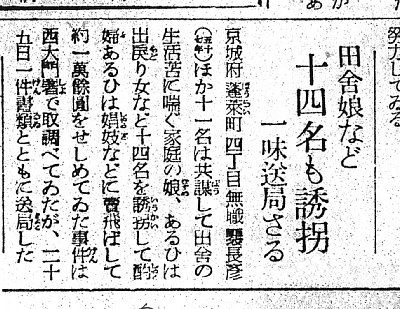 発力してゐる
田舎娘など
十四名も誘拐
一味送局さる
京城府蓬莱町四丁目無職 長彦
ほか十一名は共謀して田舎の
生活苦に喘ぐ家庭の娘、あるひは
出戻り女など十四名を誘拐して酌
婦あるひは娼妓などに賣飛ばして
約一萬餘圓をせしめてゐた事件は
西大門署で取調べてゐたが、二十
五日一件書類とともに送局した